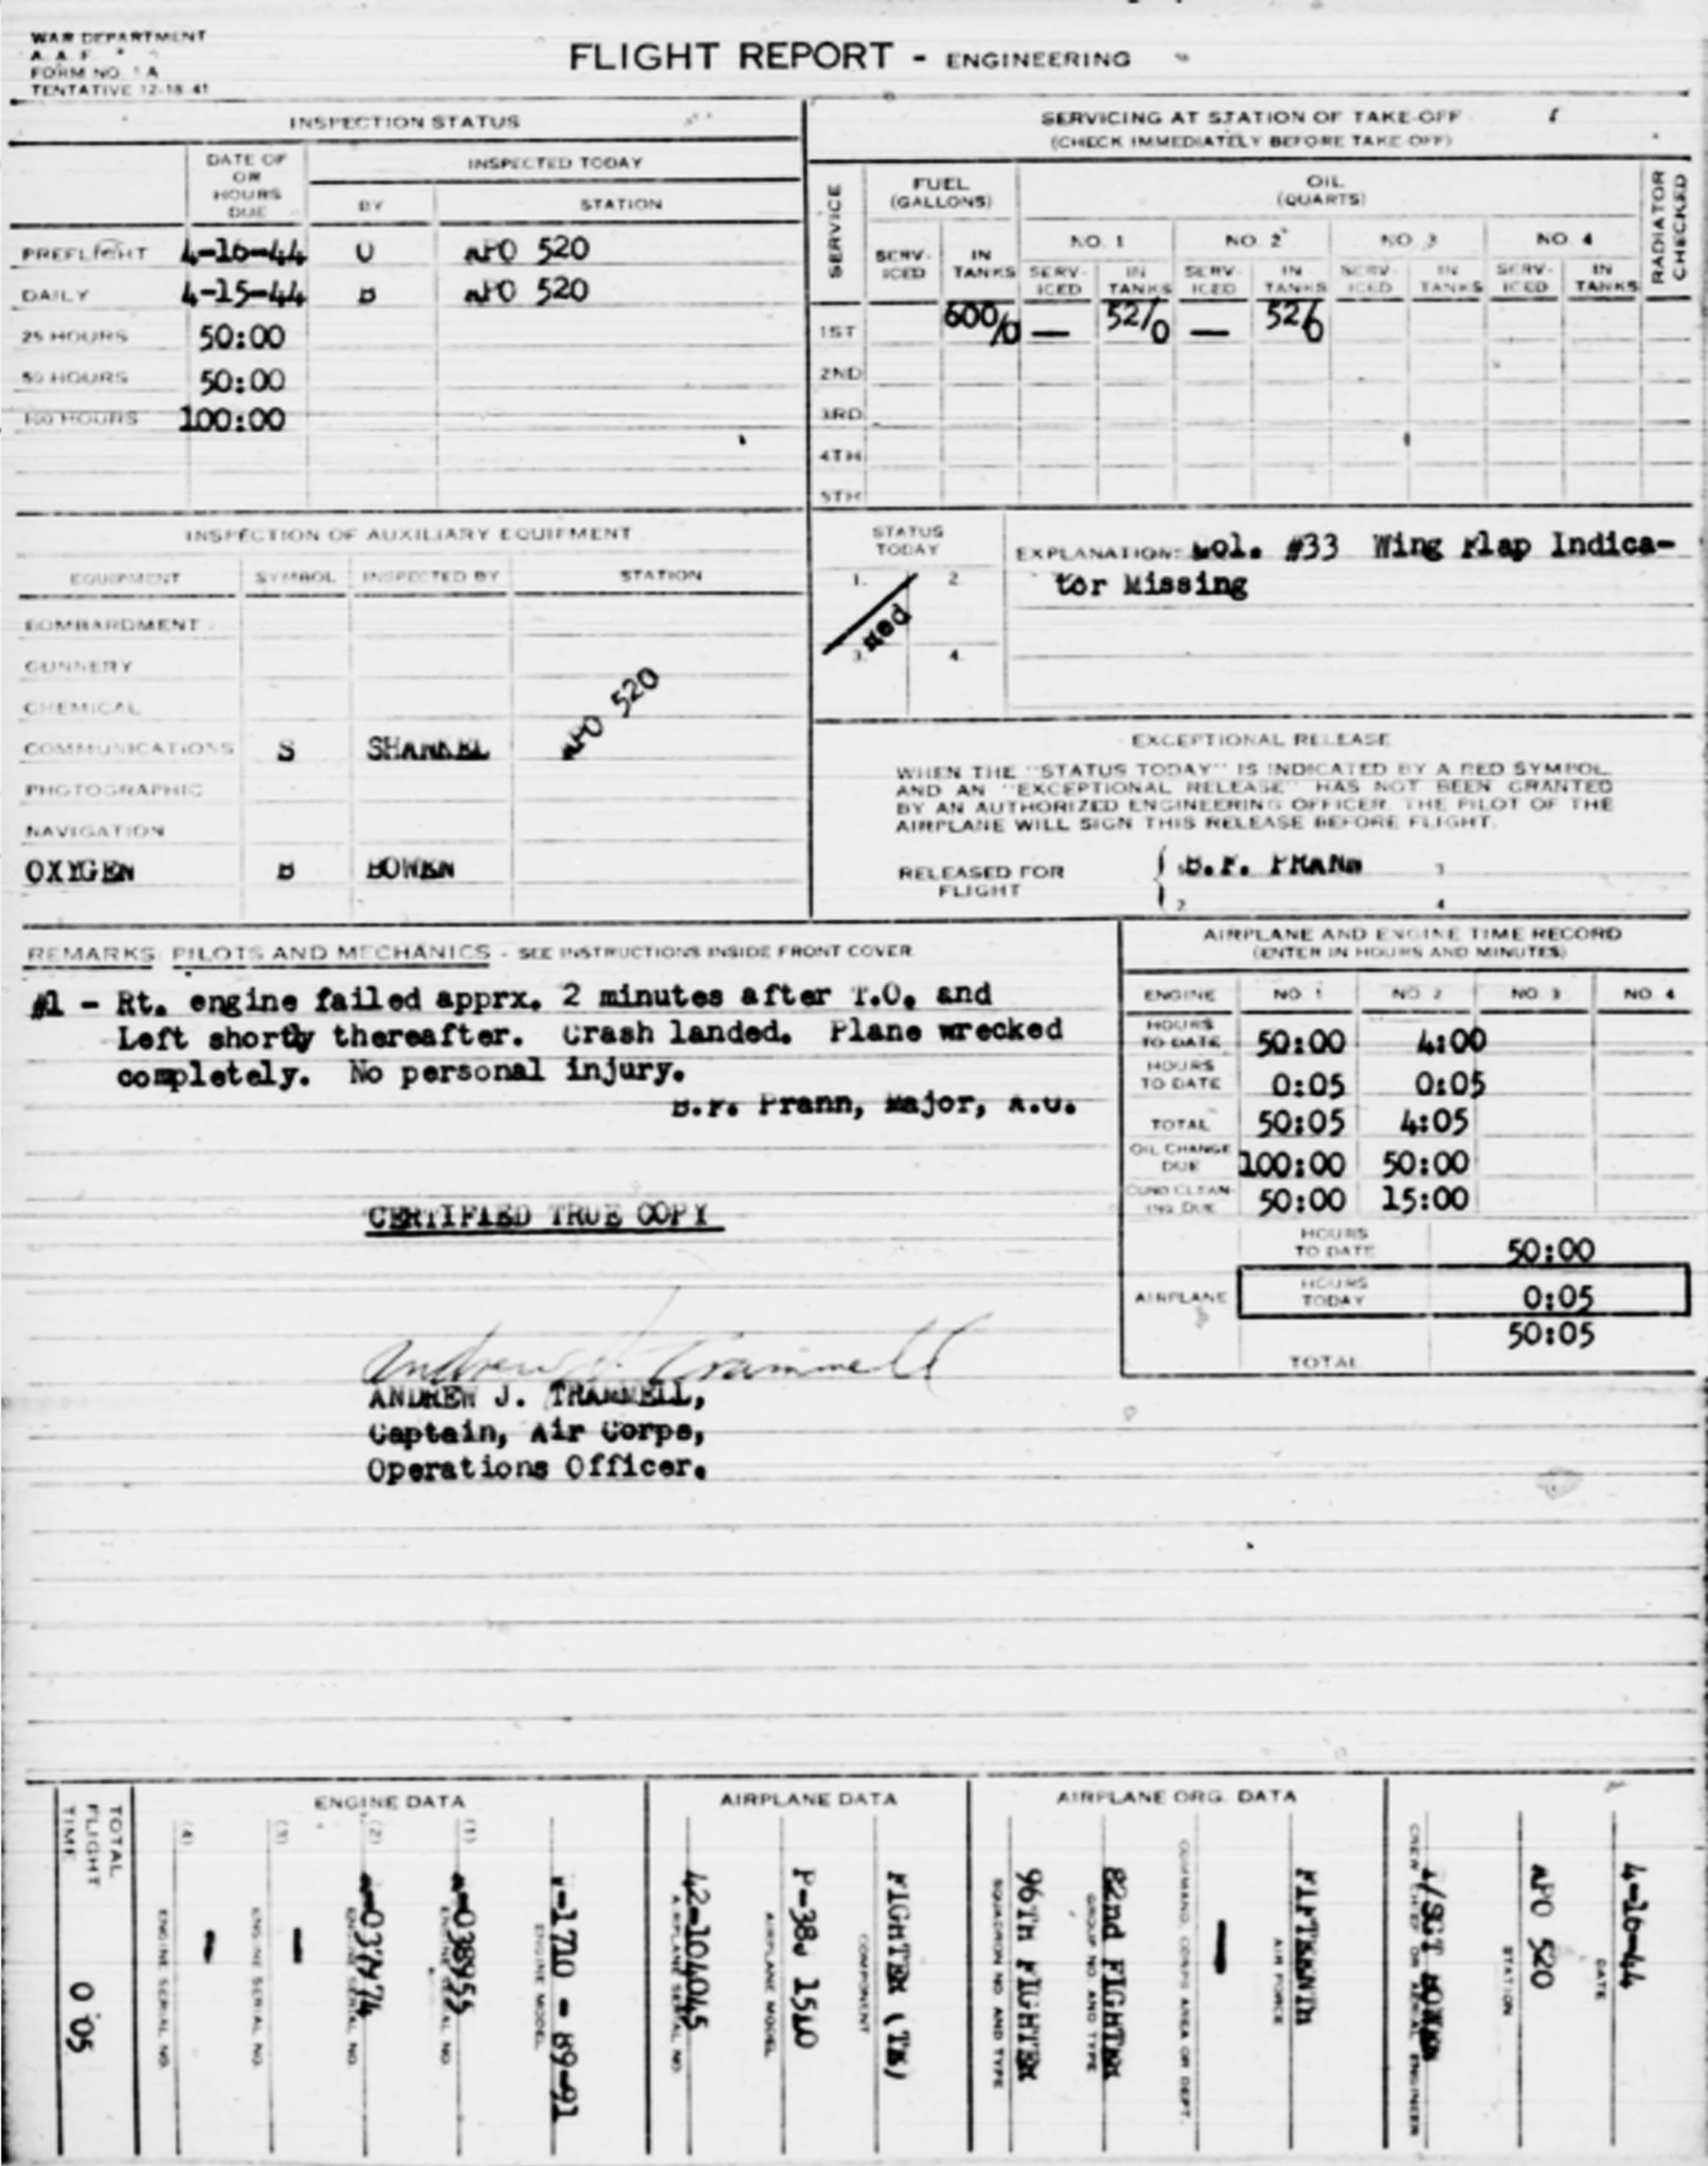 WAR DEPARTMENT
A. A. F.
FORM NO. 1A
TENTATIVE 12-18-41
FLIGHT REPORT - ENGINEERING
INSPECTION STATUS
DATE OF OR HOURS DUE
INSPECTED TODAY
BY
STATION
PREFLIGHT 4-16-44 U APO 520
DAILY 4-15-44 B APO 520
25 HOURS 50:00
50 HOURS 50:00
100 HOURS 100:00
SERVICING AT STATION OF TAKE-OFF
(CHECK IMMEDIATELY BEFORE TAKE-OFF)
SERVICE
FUEL (GALLONS)
OIL (QUARTS)
RADIATOR CHECKED
NO. 1 NO. 2 NO. 3 NO. 4
SERV-ICED IN TANKS SERV-ICED IN TANKS SERV-ICED IN TANKS SERV-ICED IN TANKS SERV-ICED IN TANKS
1ST 600/0 — 52/0 — 52/0
2ND
3RD
4TH
5TH
INSPECTION OF AUXILIARY EQUIPMENT
EQUIPMENT SYMBOL INSPECTED BY STATION
BOMBARDMENT
GUNNERY
CHEMICAL
COMMUNICATIONS S SHANKEL APO 520
PHOTOGRAPHIC
NAVIGATION
OXYGEN B BOWEN
STATUS TODAY
1. 2.
Red
3. 4.
EXPLANATION: #33 Wing Flap Indica-
tor Missing
EXCEPTIONAL RELEASE
WHEN THE "STATUS TODAY" IS INDICATED BY A RED SYMBOL
AND AN "EXCEPTIONAL RELEASE" HAS NOT BEEN GRANTED
BY AN AUTHORIZED ENGINEERING OFFICER, THE PILOT OF THE
AIRPLANE WILL SIGN THIS RELEASE BEFORE FLIGHT.
RELEASED FOR FLIGHT
1 B.F. PRANN 3
2 4
REMARKS: PILOTS AND MECHANICS - SEE INSTRUCTIONS INSIDE FRONT COVER
#1 - Rt. engine failed apprx. 2 minutes after T.O. and
Left shortly thereafter. Crash landed. Plane wrecked
completely. No personal injury.
B.F. Prann, Major, A.C.
CERTIFIED TRUE COPY
Andrew J. Trammell
ANDREW J. TRAMMELL,
Captain, Air Corps,
Operations Officer.
AIRPLANE AND ENGINE TIME RECORD
(ENTER IN HOURS AND MINUTES)
ENGINE NO. 1 NO. 2 NO. 3 NO. 4
HOURS TO DATE 50:00 4:00
HOURS TO DATE 0:05 0:05
TOTAL 50:05 4:05
OIL CHANGE DUE 100:00 50:00
CUNO CLEAN-ING DUE 50:00 15:00
AIRPLANE
HOURS TO DATE 50:00
HOURS TODAY 0:05
TOTAL 50:05
TOTAL FLIGHT TIME
0 05
ENGINE DATA
(4) — ENGINE SERIAL NO.
(3) — ENGINE SERIAL NO.
(2) ENGINE SERIAL NO.
(1) A-038955 ENGINE SERIAL NO.
V-1710 - 89-91
ENGINE MODEL
AIRPLANE DATA
42-104045
AIRPLANE SERIAL NO.
P-38J 15LO
AIRPLANE MODEL
FIGHTER (TE)
COMPONENT
AIRPLANE ORG. DATA
96TH FIGHTER
SQUADRON NO AND TYPE
82nd FIGHTER
GROUP NO AND TYPE
—
COMMAND, CORPS AREA OR DEPT.
FIFTEENTH
AIR FORCE
BOWEN
CREW CHIEF OR AERIAL ENGINEER
APO 520
STATION
4-16-44
DATE